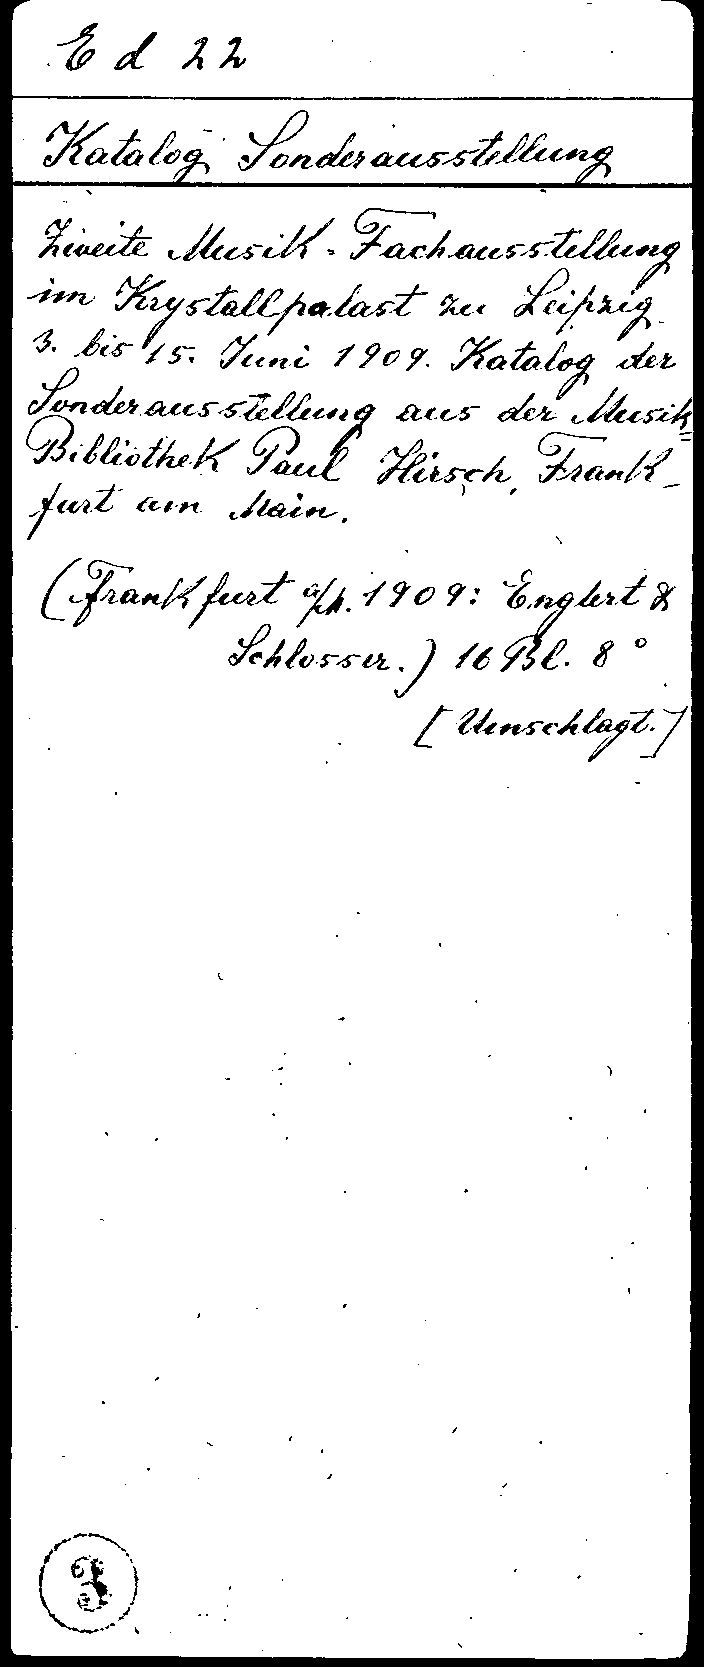 E d 22
Katalog Sonderausstellung
Zweite Musik-Fachausstellung
im Krystallpalast zu Leipzig
3. bis 15. Juni 1909. Katalog der
Sonderausstellung aus der Musik=
Bibliothek Paul Hirsch, Frank-
furt am Main.
(Frankfurt a/M. 1909: Englert &
Schlosser.) 16 Bl. 8°
[Umschlagt.]